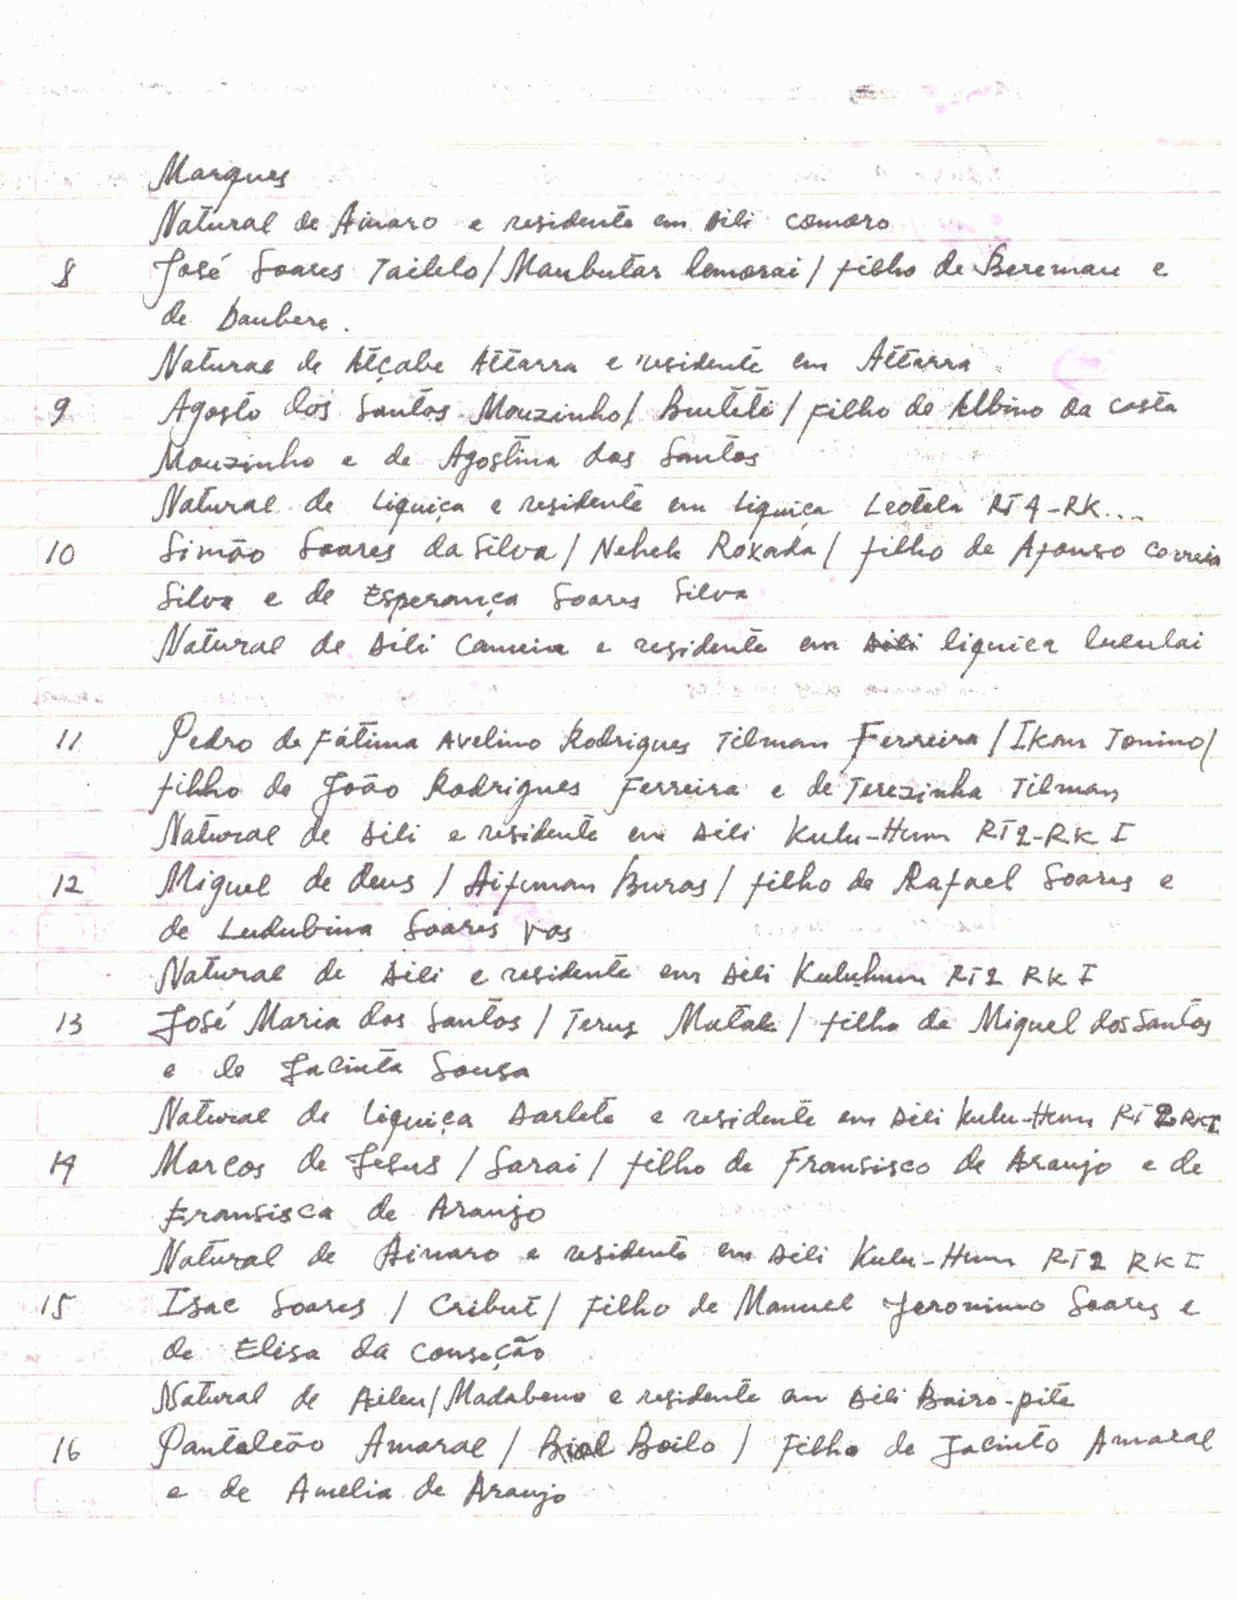 Marques
Natural de Ainaro e residente em Dili comoro
8 José Soares Tailelo / Maubutar lemorai / filho de Beremau e
de Daubere.
Natural de Atçabe Attarra e residente em Attarra
9 Agosto dos Santos Mouzinho / Buiteti / filho de Albino da costa
Mouzinho e de Agostina dos Santos
Natural de Liquiça e residente em Liquiça Leotela RT4-RK...
10 Simão Soares da Silva / Nehek Roxada / filho de Afonso Correia
Silva e de Esperança Soares Silva
Natural de Dili Cameia e residente em liquiça lukulai
11 Pedro de Fátima Avelino Rodrigues Tilman Ferreira / Ikan Tonino /
filho de João Rodrigues Ferreira e de Terezinha Tilman
Natural de Dili e residente em Dili Kulu-Hum RT2-RK I
12 Miguel de Deus / Aifuman Buras / filho de Rafael Soares e
de Ludubina Soares Vas
Natural de Dili e residente em Dili Kuluhum RT2 RK I
13 José Maria dos Santos / Terus Mutak / filho de Miguel dos Santos
e de Jacinta Sousa
Natural de Liquiça Darlete e residente em Dili Kulu-Hum RT 2 RK I
14 Marcos de Jesus / Sarai / filho de Fransisco de Araujo e de
Fransisca de Araujo
Natural de Ainaro e residente em Dili Kulu-Hum RT2 RK I
15 Isac Soares / Cribut / Filho de Manuel Jeronimo Soares e
de Elisa da Conseção
Natural de Aileu/Madabeno e residente em Dili Bairo-pite
16 Pantaleão Amaral / Boilo / Filho de Jacinto Amaral
e de Amelia de Araujo